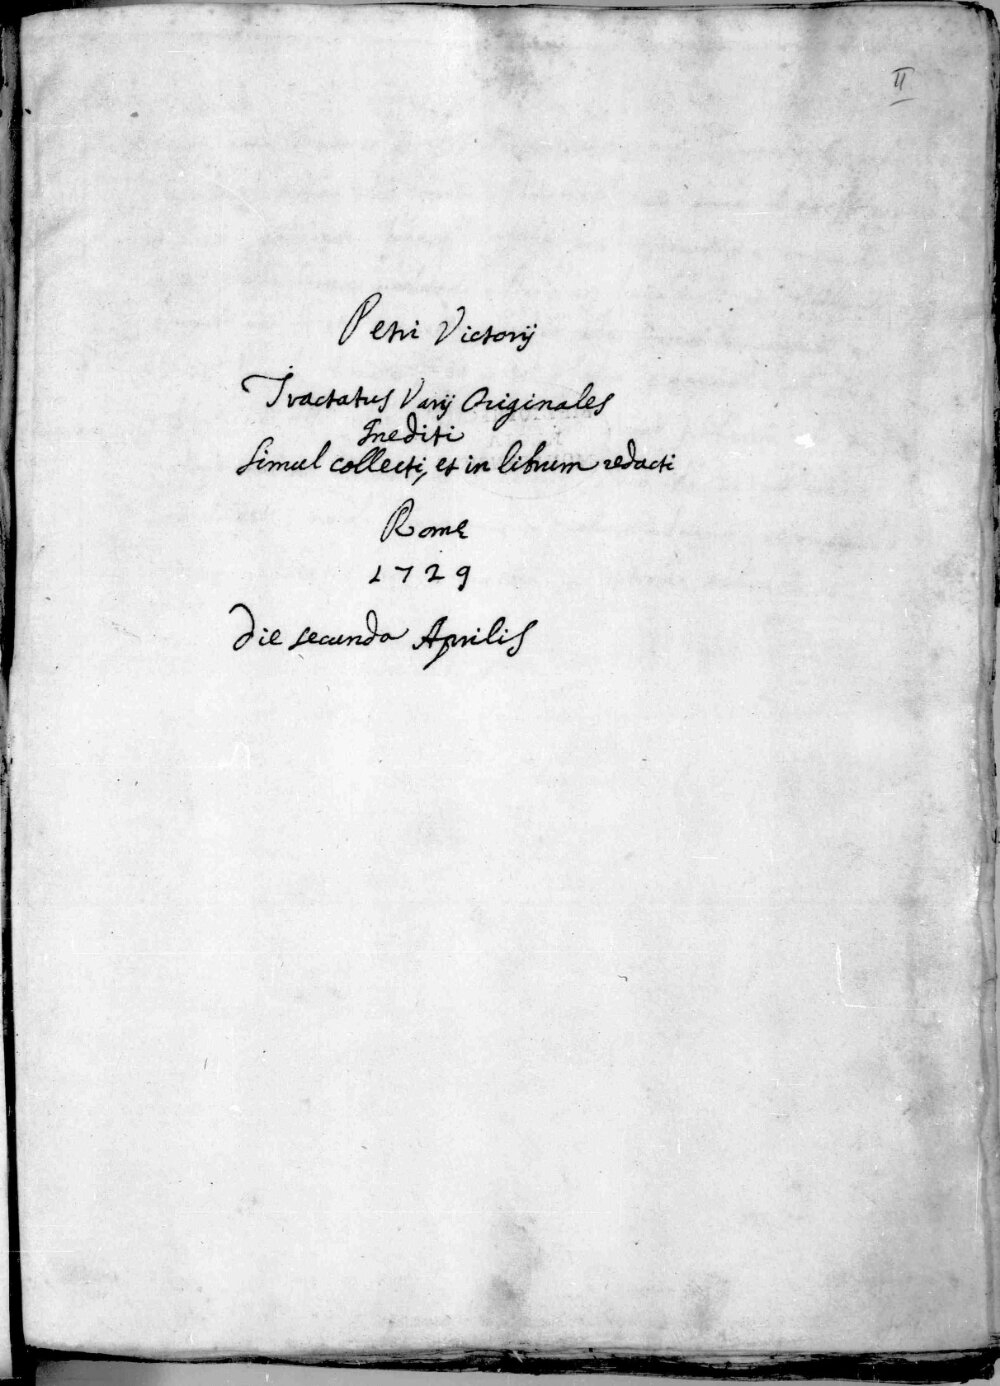 II
Petri Victorij
Tractatus Varij Originales
Inediti
Simul collecti, et in librum redacti
Romę
1729
Die secunda Aprilis